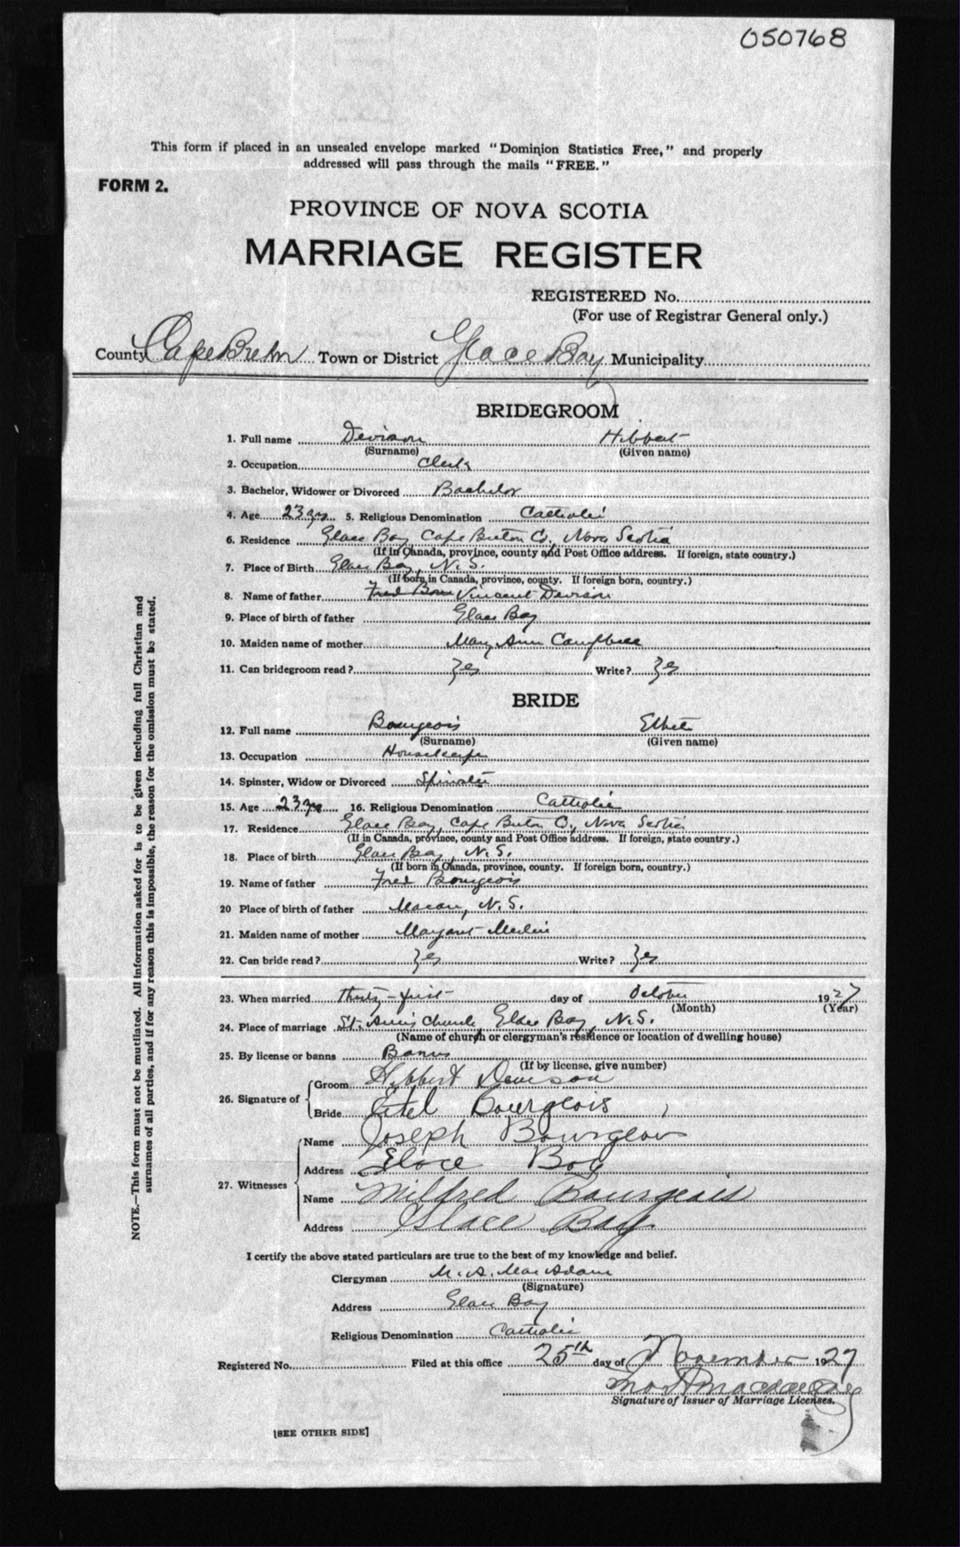 050768
This form if placed in an unsealed envelope marked "Dominion Statistics Free," and properly
addressed will pass through the mails "FREE."
FORM 2.
PROVINCE OF NOVA SCOTIA
MARRIAGE REGISTER
REGISTERED No.
(For use of Registrar General only.)
County Cape Breton Town or District Glace Bay Municipality
BRIDEGROOM
1. Full name Devison Hibbert
(Surname) (Given name)
2. Occupation Clerk
3. Bachelor, Widower or Divorced Bachelor
4. Age 23 yrs 5. Religious Denomination Catholic
6. Residence Glace Bay Cape Breton Co., Nova Scotia
(If in Canada, province, county and Post Office address. If foreign, state country.)
7. Place of Birth Glace Bay, N.S.
(If born in Canada, province, county. If foreign born, country.)
8. Name of father Vincent Devison
9. Place of birth of father Glace Bay
10. Maiden name of mother Mary Ann Campbell
11. Can bridegroom read? Yes Write? Yes
BRIDE
12. Full name Bourgeois
(Surname) (Given name)
13. Occupation Housekeeper
14. Spinster, Widow or Divorced Spinster
15. Age 23 yrs 16. Religious Denomination Catholic
17. Residence Glace Bay, Cape Breton Co., Nova Scotia
(If in Canada, province, county and Post Office address. If foreign, state country.)
18. Place of birth Glace Bay, N.S.
(If born in Canada, province, county. If foreign born, country.)
19. Name of father Fred Bourgeois
20 Place of birth of father Macan, N.S.
21. Maiden name of mother Margaret
22. Can bride read? Yes Write? Yes
23. When married Thirty-first day of October 1927
(Month) (Year)
24. Place of marriage St. Ann's Church, Glace Bay, N.S.
(Name of church or clergyman's residence or location of dwelling house)
25. By license or banns Banns
(If by license, give number)
26. Signature of Groom Hibbert Devison
Bride Etel Bourgeois
27. Witnesses Name Joseph Bourgeois
Address Glace Bay
Name Milfred Bourgeois
Address Glace Bay
I certify the above stated particulars are true to the best of my knowledge and belief.
Clergyman M. A. MacAdam
(Signature)
Address Glace Bay
Religious Denomination Catholic
Registered No. Filed at this office 25th day of November 1927
Signature of Issuer of Marriage Licenses.
[SEE OTHER SIDE]
NOTE.—This form must not be mutilated. All information asked for is to be given including full Christian and
surnames of all parties, and if for any reason this is impossible, the reason for the omission must be stated.